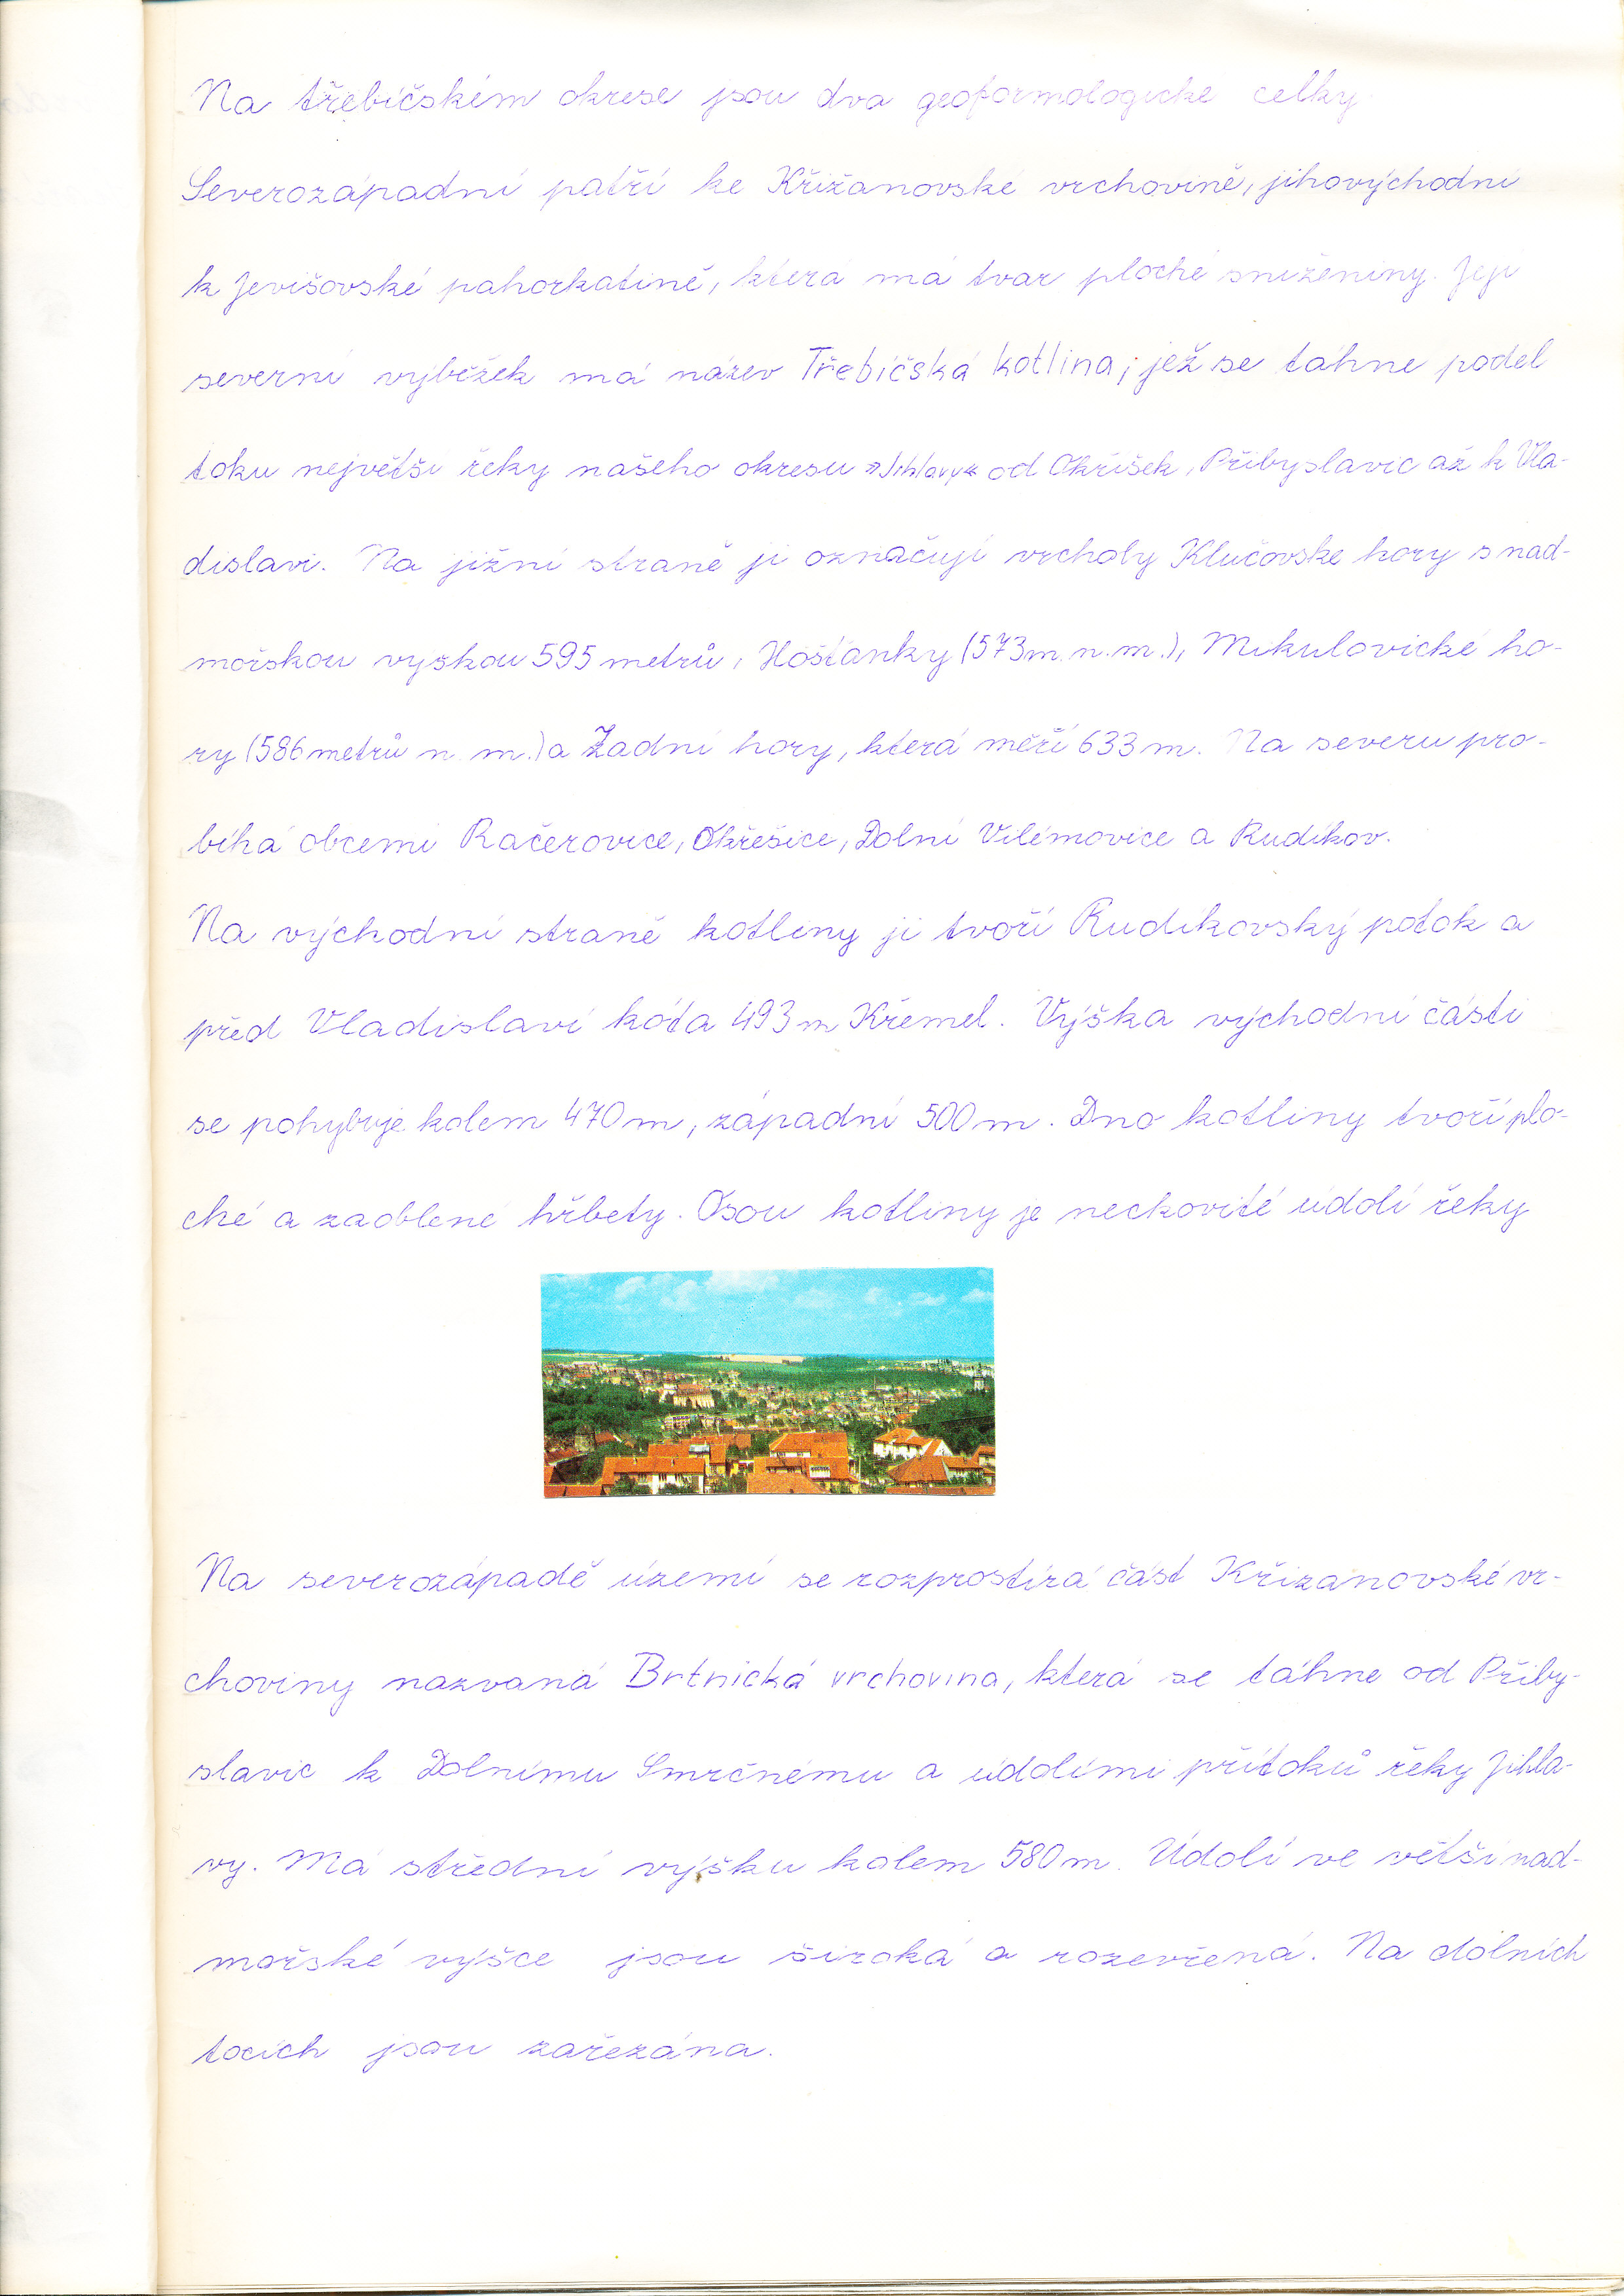 Na třebíčském okrese jsou dva geoformologické celky.
Severozápadní patří ke Křižanovské vrchovině, jihovýchodní
k Jevišovské pahorkatině, která má tvar ploché sníženiny. Její
severní výběžek má název Třebíčská kotlina, jež se táhne podél
toku největší řeky našeho okresu »Jihlavy« od Okříšek, Přibyslavic až k Vla-
dislavi. Na jižní straně ji označují vrcholy Klučovské hory s nad-
mořskou výškou 595 metrů, Hošťanky (573 m. n. m.), Mikulovické ho-
ry (586 metrů n. m.) a Zadní hory, která měří 633 m. Na severu pro-
bíhá obcemi Račerovice, Okřešice, Dolní Vilémovice a Rudíkov.
Na východní straně kotliny ji tvoří Rudíkovský potok a
před Vladislaví kóta 493 m Křemel. Výška východní části
se pohybuje kolem 470 m, západní 500 m. Dno kotliny tvoří plo-
ché a zaoblené hřbety. Osou kotliny je neckovité údolí řeky
Na severozápadě území se rozprostírá část Křižanovské vr-
choviny nazvaná Brtnická vrchovina, která se táhne od Přiby-
slavic k Dolnímu Smrčnému a údolími přítoků řeky Jihla-
vy. Má střední výšku kolem 580 m. Údolí ve větší nad-
mořské výšce jsou široká a rozevřená. Na dolních
tocích jsou zařezána.